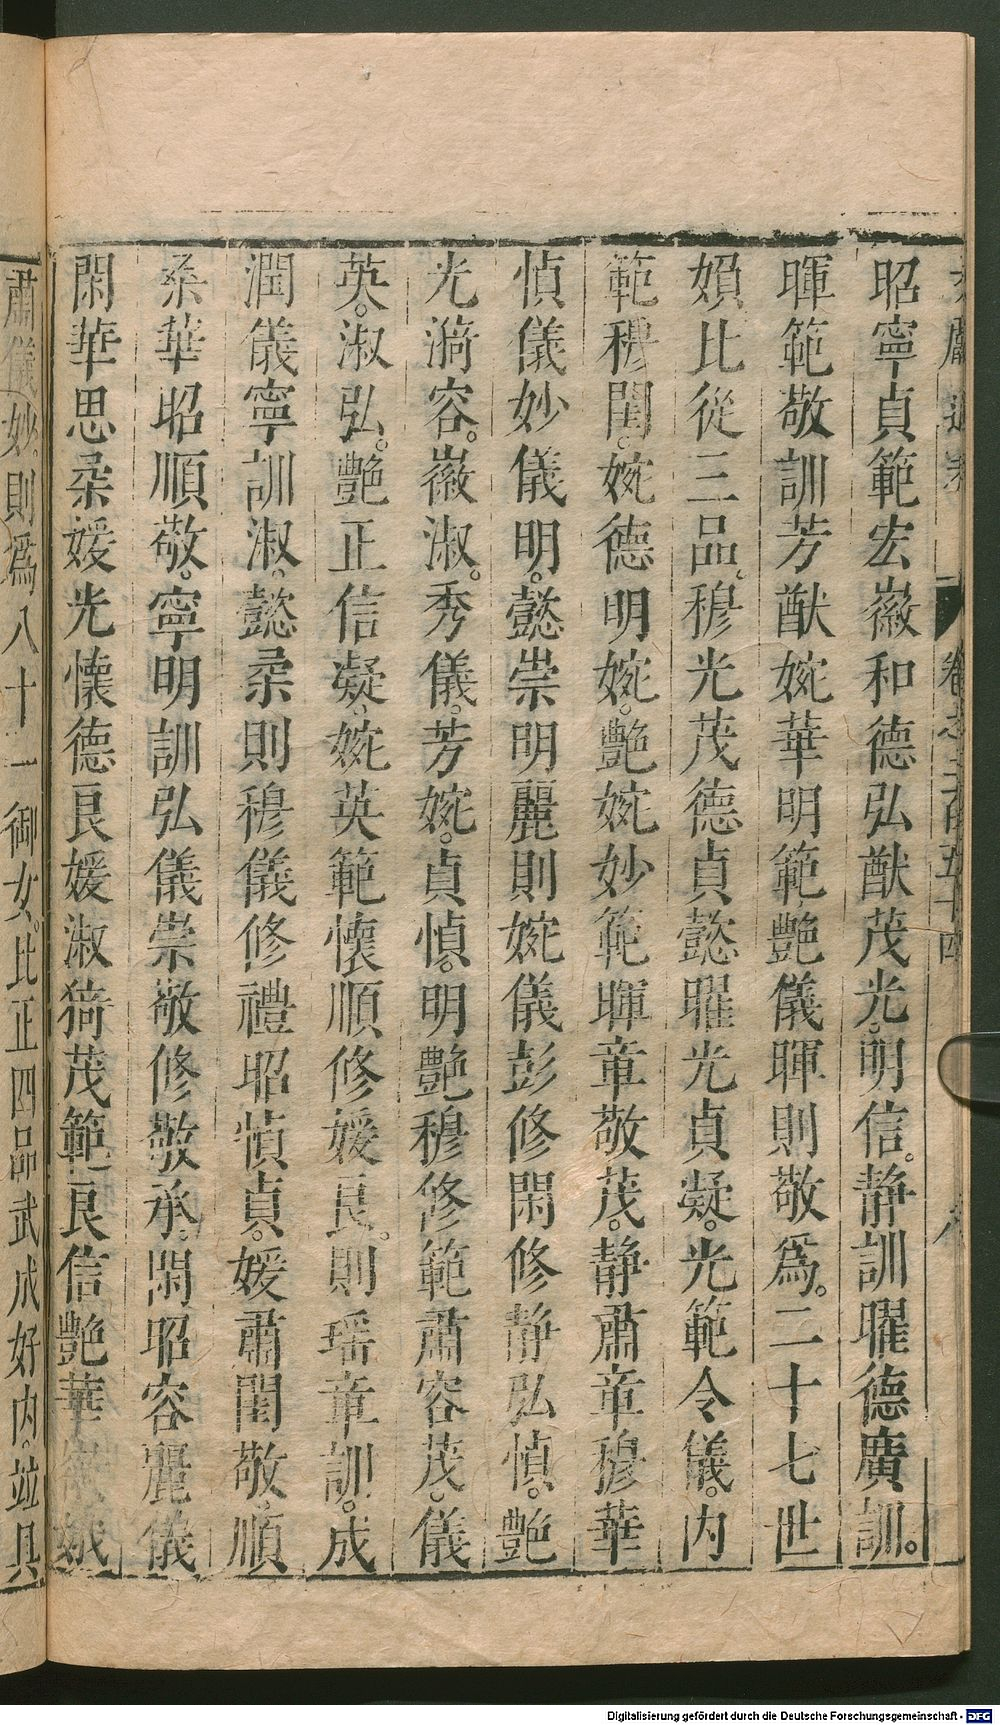 昭寧貞範宏徽和德弘猷茂光。明信。静訓曜德廣訓。
暉範敬訓芳猷婉華明範艶儀暉則敬爲。二十七世
嬪比從三品。穆光茂德貞懿曜光貞凝。光範令儀。内
範穆閨。婉德明婉。艶婉妙範暉章敬茂。静肅章穆華
慎儀妙儀明。懿崇明麗則婉儀彭修閑修静弘慎。艶
光漪容。徽淑。秀儀。芳婉。貞慎。明艶穆修範肅容茂。儀
英。淑弘。艶正信凝。婉英範懷順修媛良。則瑶章訓。成
潤儀寧訓淑。懿柔則穆儀修禮昭慎貞。媛肅閨敬順
柔華昭順敬。寧明訓弘儀崇敬修敬承。閑昭容麗儀
閑華思柔媛光懷德良媛淑猗茂範良信艶華
肅儀妙。則爲八十一御女。比正四品武成好内。並具
卷之二百五十四
八
Digitalisierung gefördert durch die Deutsche Forschungsgemeinschaft - DFG